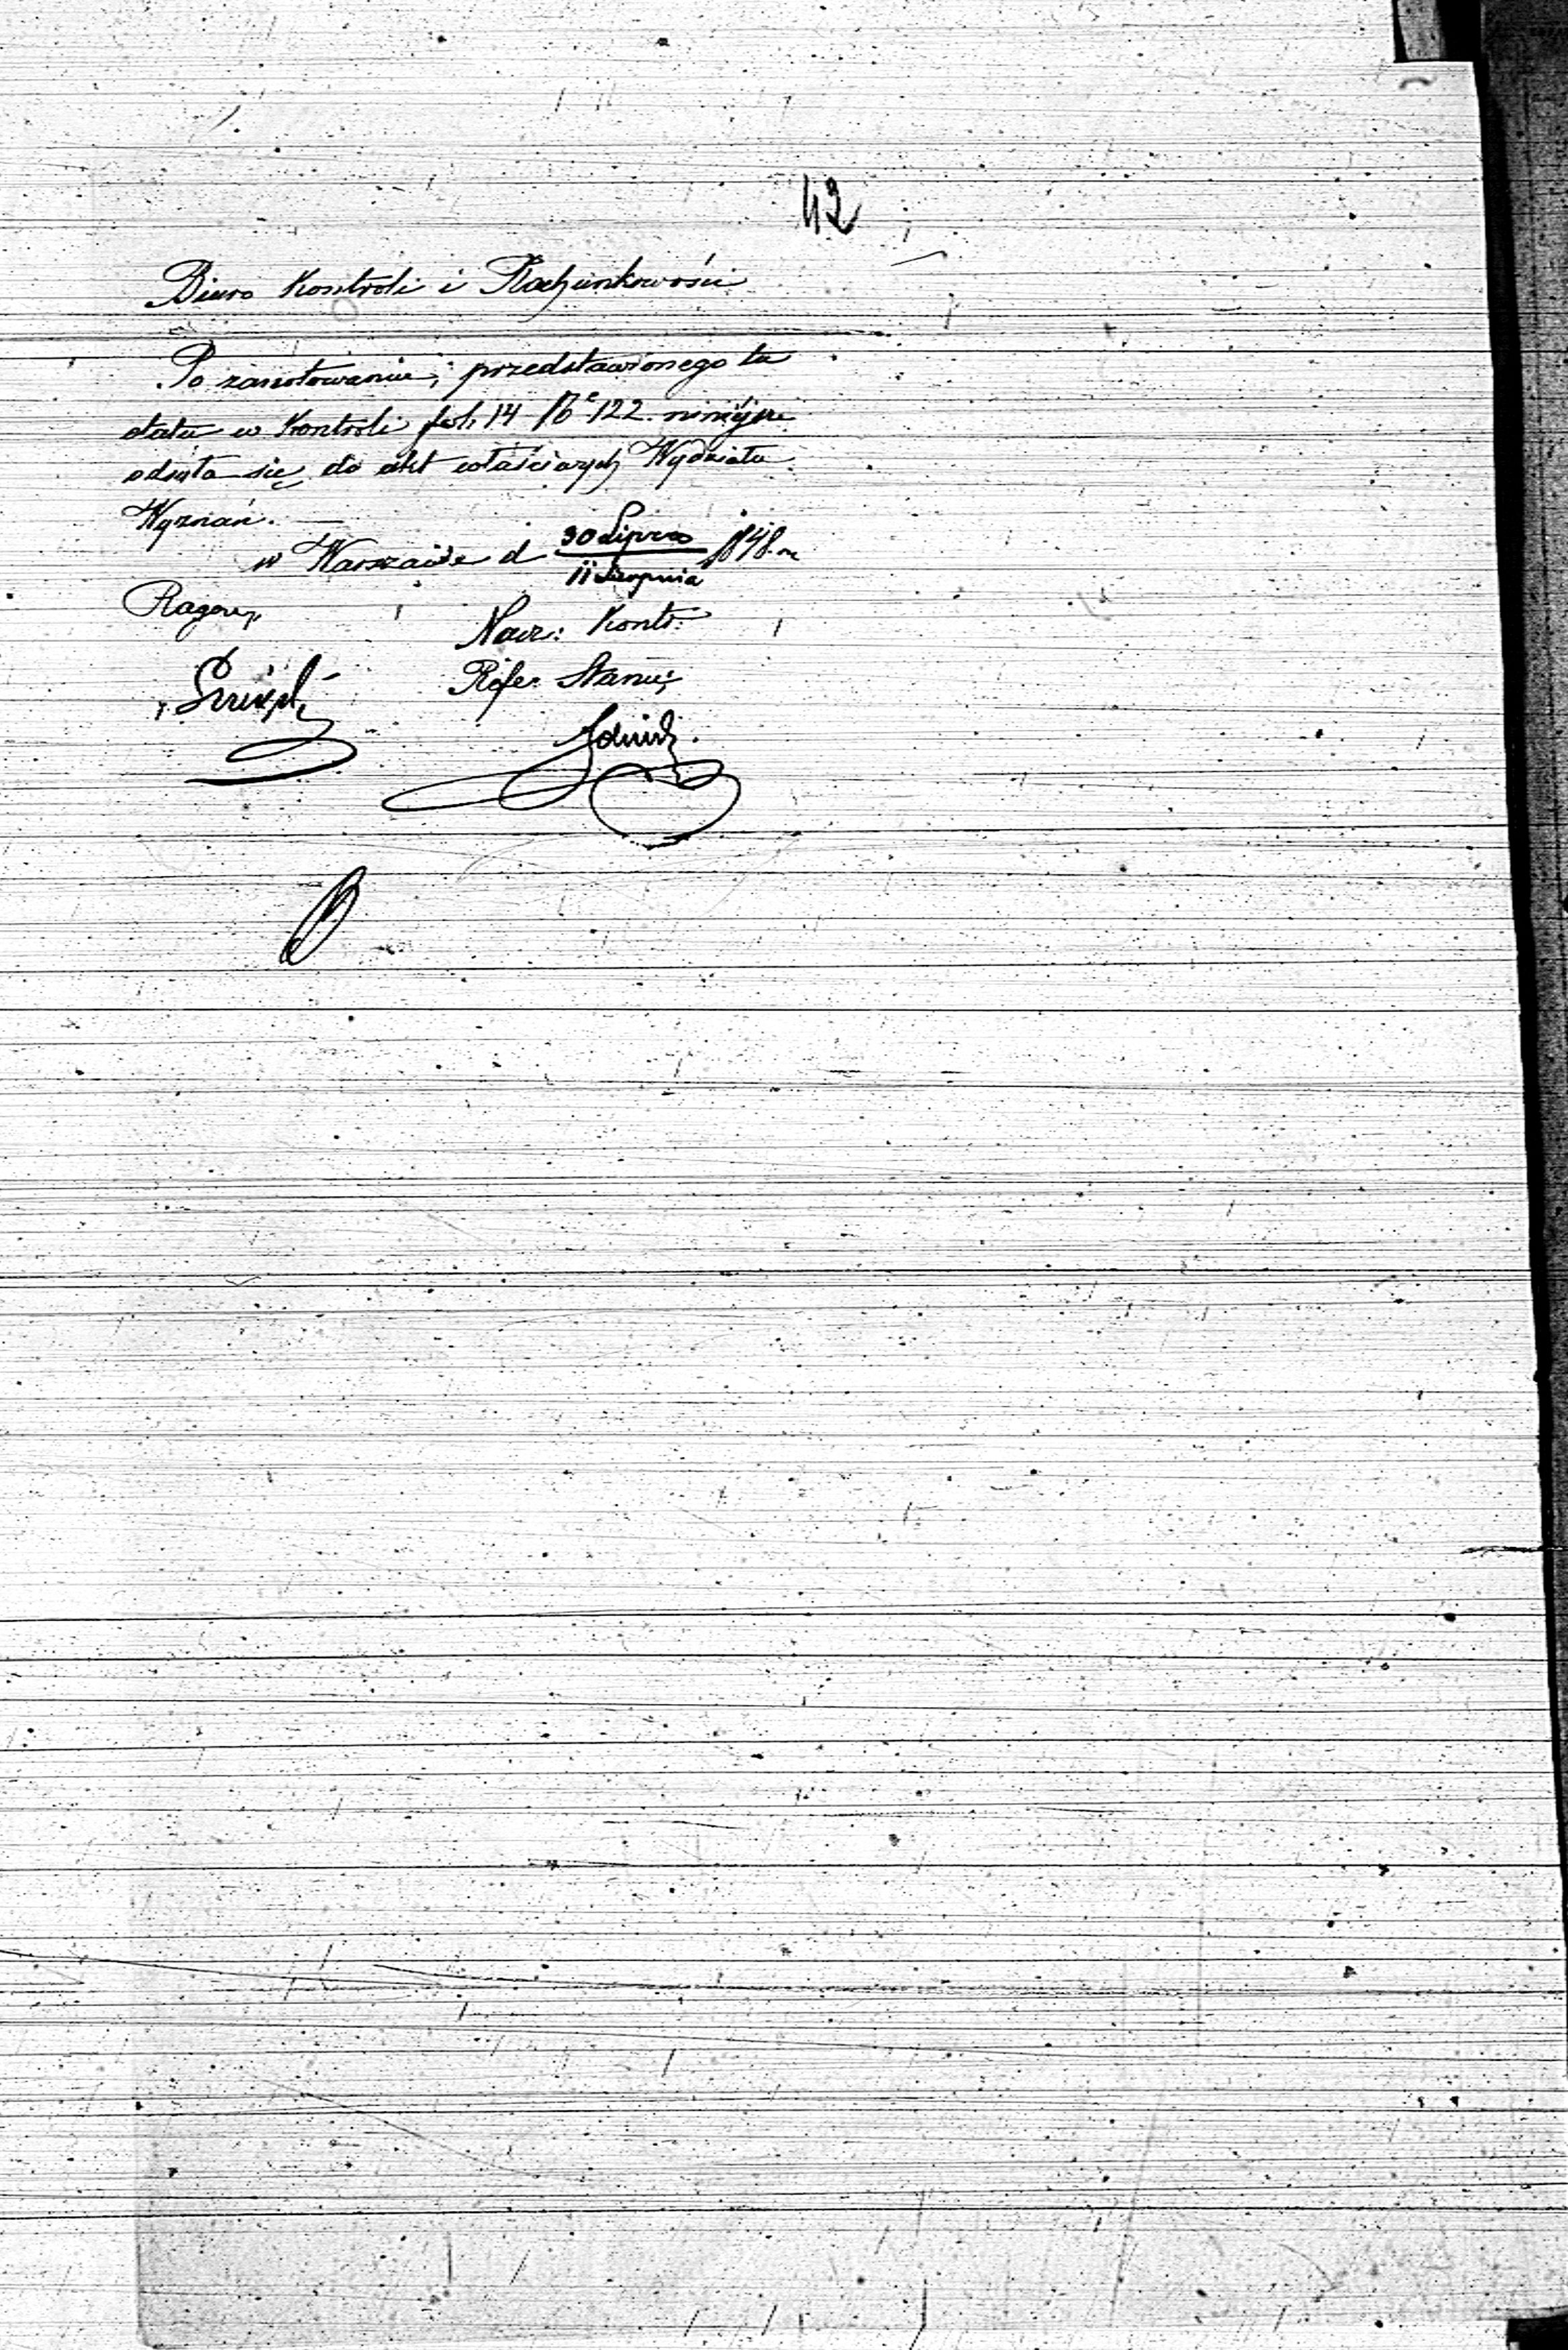 42
Biuro Kontroli i Rachunkowości
Po zanotowaniu, przedstawionego tu
etatu w Kontroli fol. 14 No 122. niniejsze
odsyła się do akt właściwych Wydziału
Wyznań.
w Warszawie d 30 Lipca / 11 Sierpnia 1848. r.
Nacz: Kontr:
Refer: Stanu;